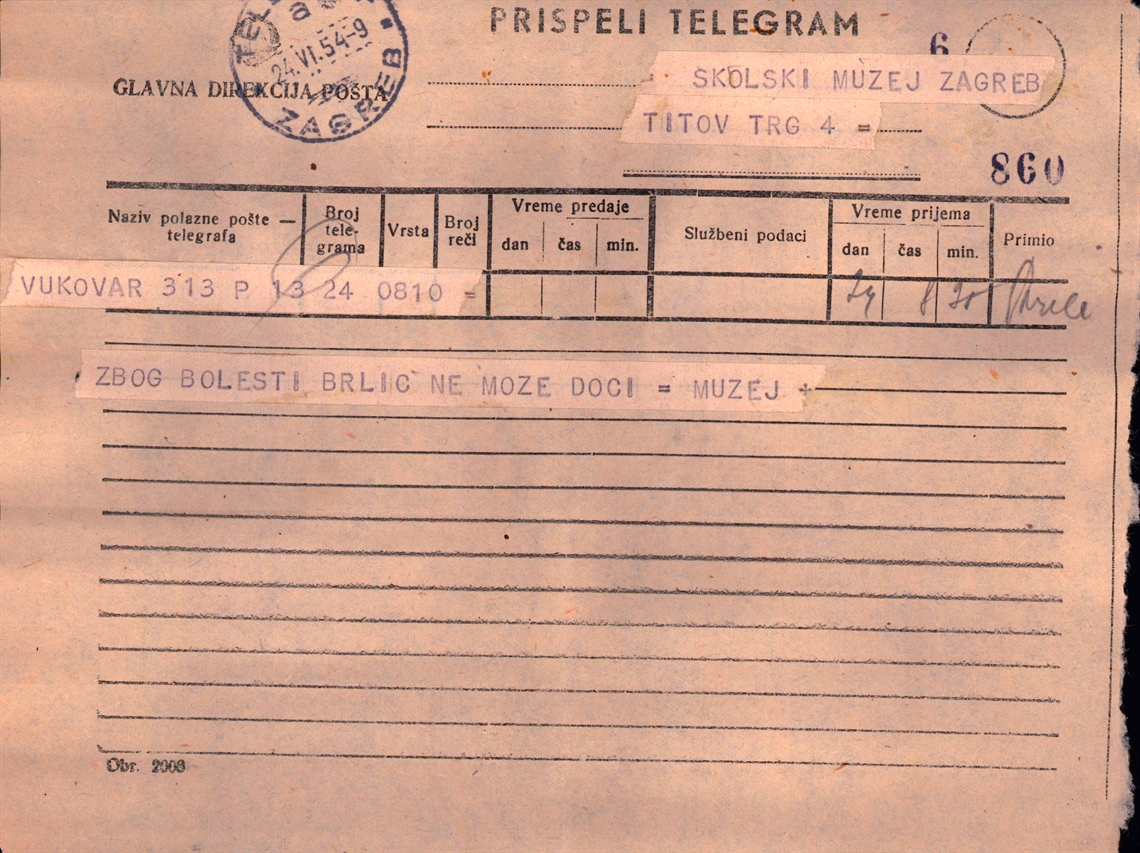 PRISPELI TELEGRAM
24.VI.54-9
ZAGREB
GLAVNA DIREKCIJA POŠTA
6
SKOLSKI MUZEJ ZAGREB
TITOV TRG 4 =
860
Naziv polazne pošte — telegrafa
Broj telegrama
Vrsta
Broj reči
Vreme predaje
dan čas min.
Službeni podaci
Vreme prijema
dan čas min.
Primio
VUKOVAR 313 P 13 24 0810 =
24 8 30
ZBOG BOLESTI BRLIC NE MOZE DOCI = MUZEJ +
Obr. 2003